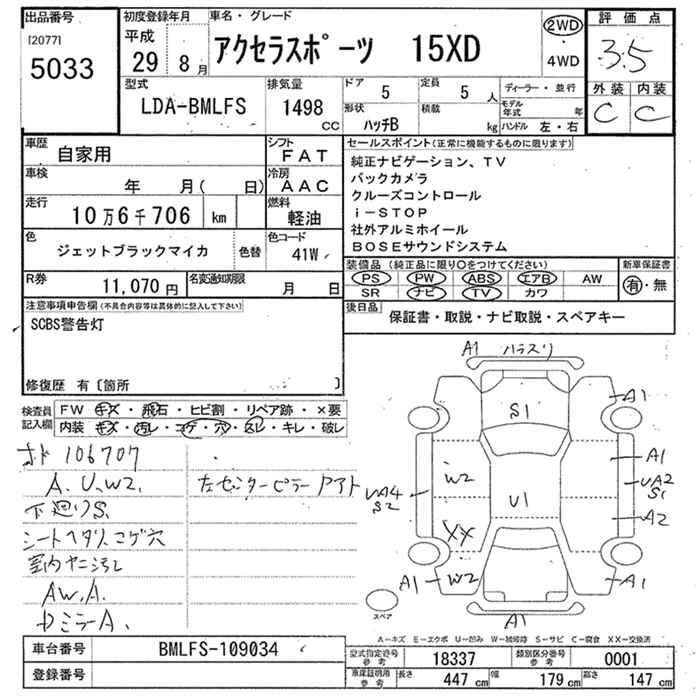 出品番号 [2077] 5033
初度登録年月 平成 29年 8月
車名・グレード アクセラスポーツ 15XD
2WD
4WD
評価点 3.5
型式 LDA-BMLFS
排気量 1498 CC
ドア 5
定員 5人
形状 ハッチB
積載 kg
ディーラー・並行
モデル年式 年
ハンドル 左・右
外装 内装
C C
車歴 自家用
シフト FAT
車検 年 月( 日)
冷房 AAC
走行 10万6千706 km
燃料 軽油
色 ジェットブラックマイカ 色替
色コード 41W
R券 11,070円
名変通知期限 月 日
セールスポイント(正常に機能するものに限ります)
純正ナビゲーション、TV
バックカメラ
クルーズコントロール
i-STOP
社外アルミホイール
BOSEサウンドシステム
装備品(純正品に限り○をつけてください) 新車保証書
PS PW ABS エアB AW 有・無
SR ナビ TV カワ
後日品 保証書・取説・ナビ取説・スペアキー
注意事項申告欄(不具合内容等は具体的に記入して下さい)
SCBS警告灯
修復歴 有〔箇所 〕
検査員記入欄
FW キズ・飛石・ヒビ割・リペア跡・×要
内装 キズ・汚レ・コゲ・穴・スレ・キレ・破レ
106707
A.U.W2.
下廻りS.
シートヘタリコゲ穴
室内ヤニ汚レ
AW.A.
ドミラーA.
左センターピラー
A1
A1
S1
A1
W2
UA4
S2
UA2
S1
U1
A2
XX
A1
W2
A1
A1
スペア
A-キズ E-エクボ U-凹み W-補修跡 S-サビ C-腐食 XX-交換済
車台番号 BMLFS-109034
登録番号
型式指定番号 参考 18337
類別区分番号 参考 0001
車庫証明用 参考 長さ 447 cm 幅 179 cm 高さ 147 cm